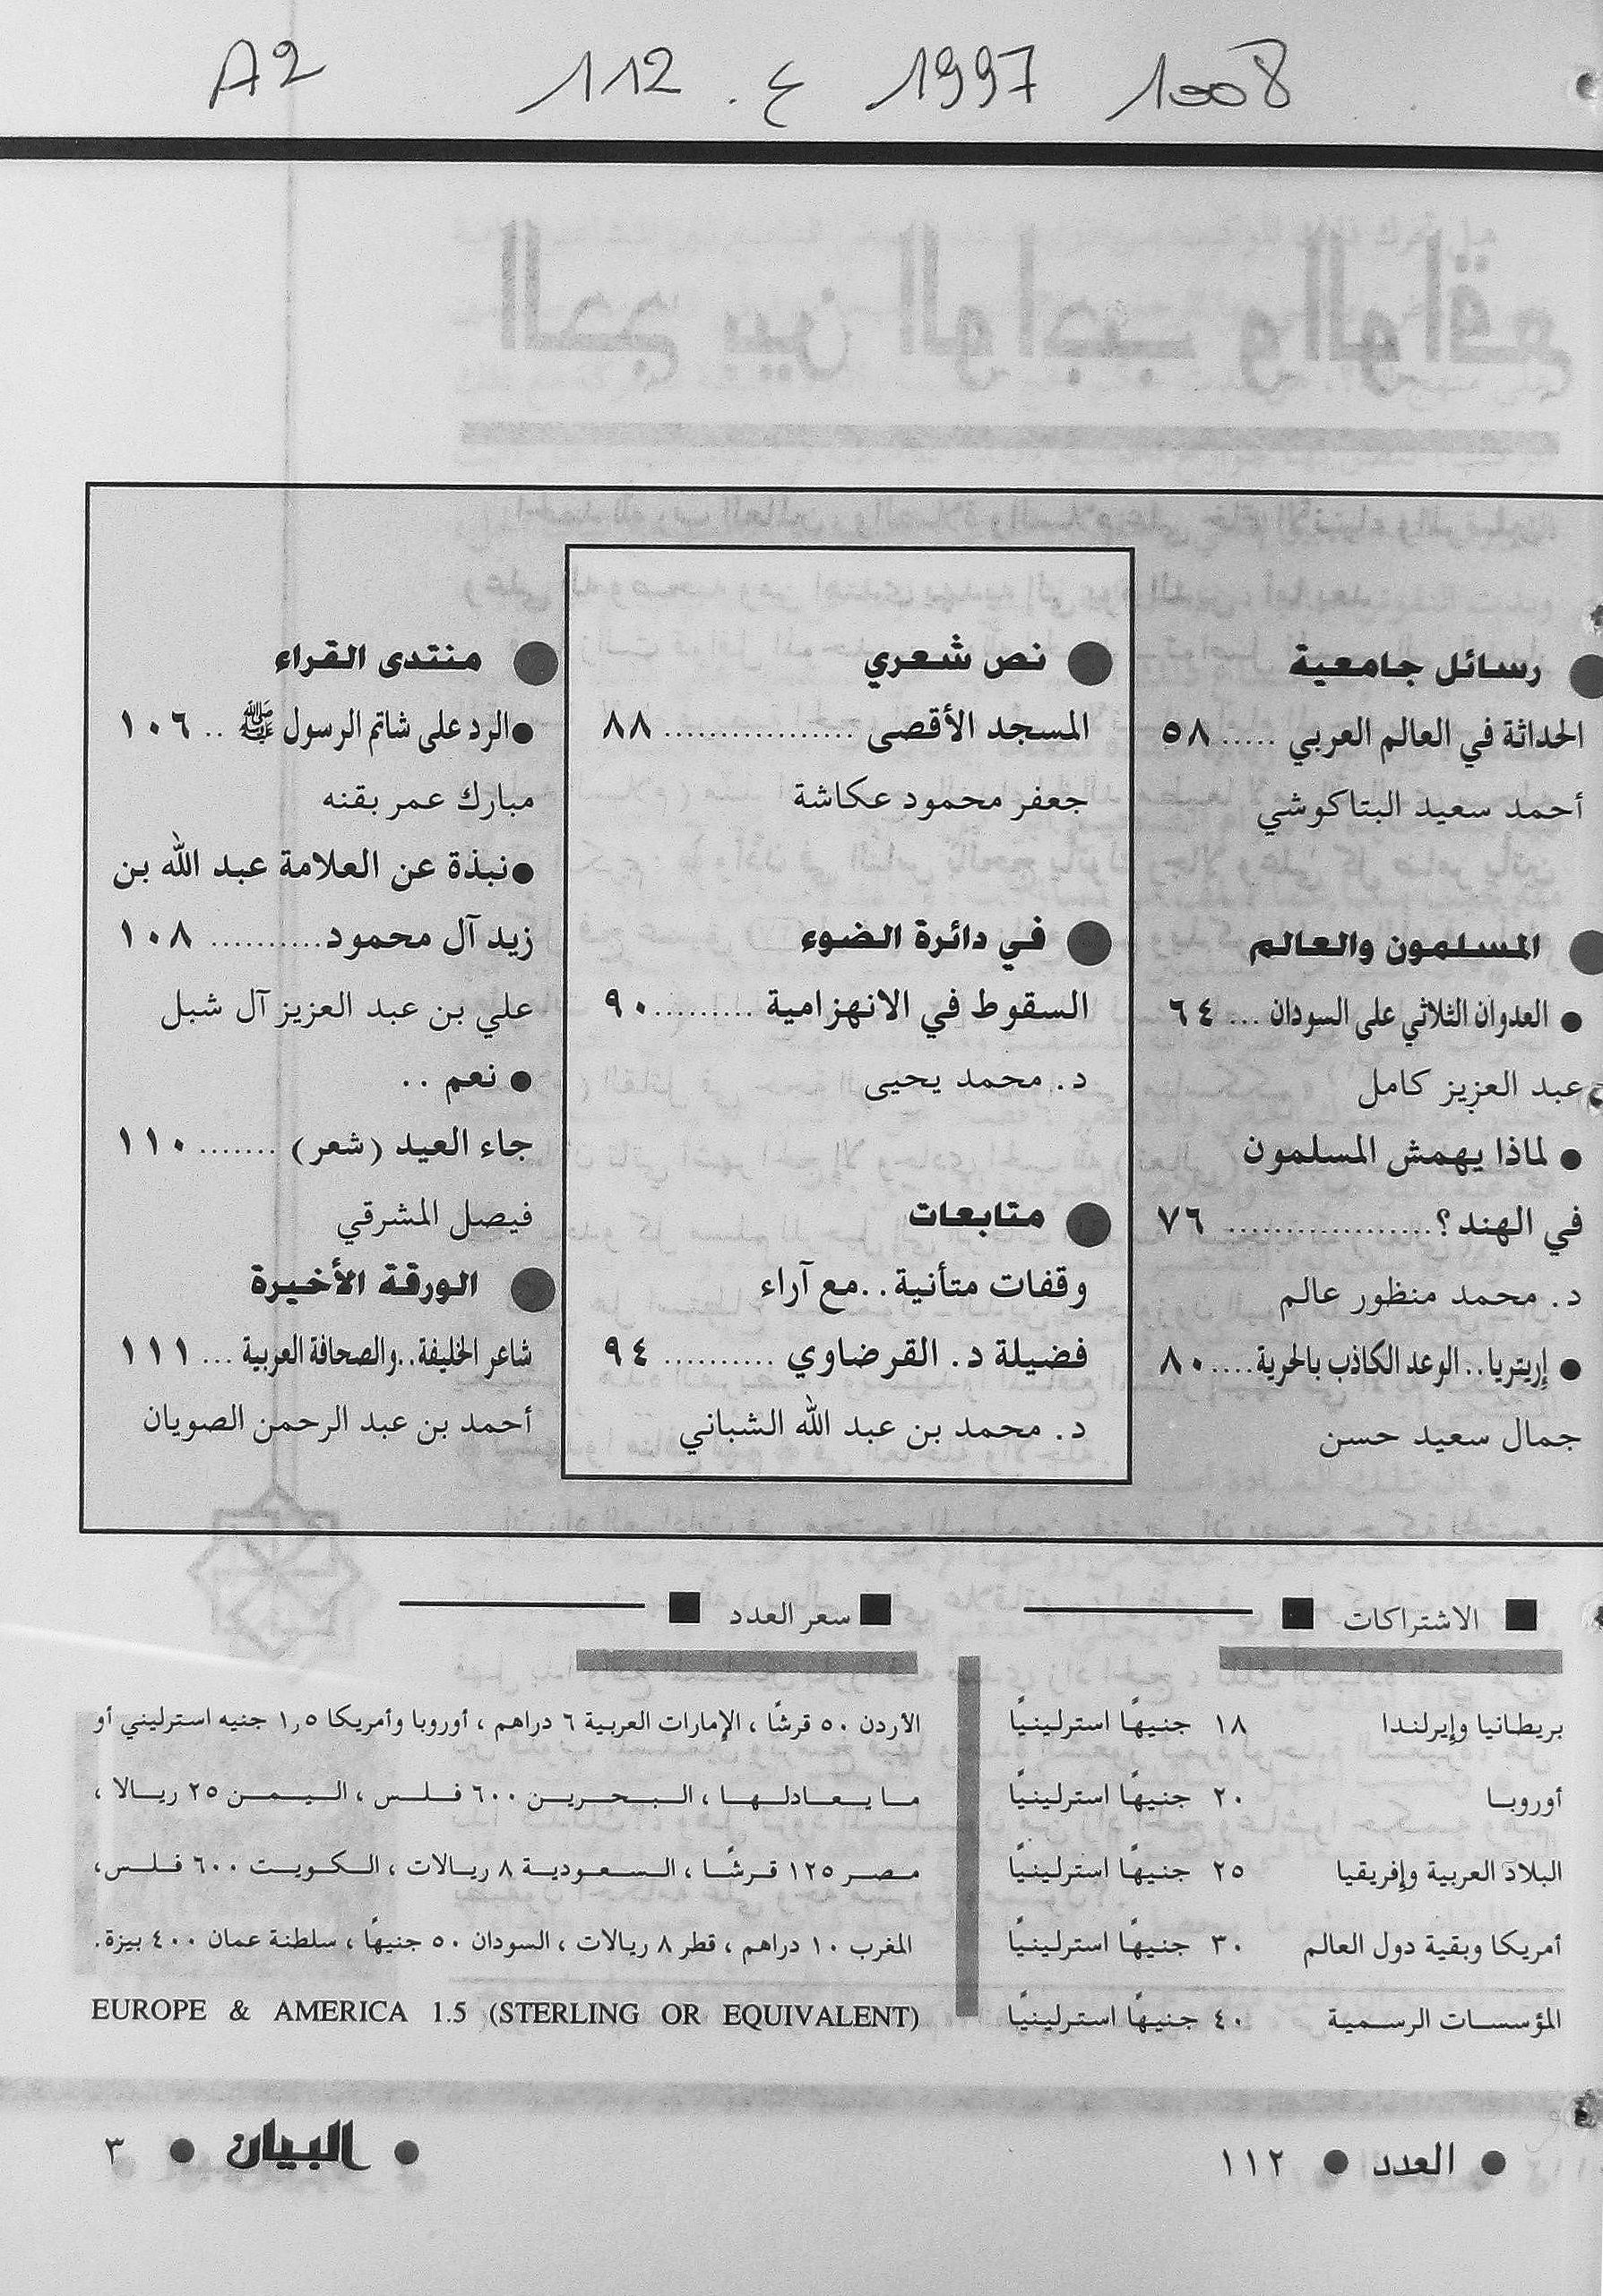 A2 112 ع. 1997 1008
رسائل جامعية
الحداثة في العالم العربي ..... ٥٨
أحمد سعيد البتاكوشي
المسلمون والعالم
● العدوان الثلاثي على السودان ... ٦٤
عبد العزيز كامل
● لماذا يهمش المسلمون
في الهند؟ .................. ٧٦
د. محمد منظور عالم
● إريتريا.. الوعد الكاذب بالحرية.... ٨٠
جمال سعيد حسن
نص شعري
المسجد الأقصى ................. ٨٨
جعفر محمود عكاشة
في دائرة الضوء
السقوط في الانهزامية ......... ٩٠
د. محمد يحيى
متابعات
وقفات متأنية..مع آراء
فضيلة د. القرضاوي .......... ٩٤
د. محمد بن عبد الله الشباني
منتدى القراء
●الرد على شاتم الرسول ﷺ .. ١٠٦
مبارك عمر بقنه
●نبذة عن العلامة عبد الله بن
زيد آل محمود.......... ١٠٨
علي بن عبد العزيز آل شبل
● نعم ..
جاء العيد (شعر) ....... ١١٠
فيصل المشرقي
الورقة الأخيرة
شاعر الخليفة..والصحافة العربية ... ١١١
أحمد بن عبد الرحمن الصويان
■ الاشتراكات ■
بريطانيا وإيرلندا ١٨ جنيهًا استرلينيًا
أوروبا ٢٠ جنيهًا استرلينيًا
البلاد العربية وإفريقيا ٢٥ جنيهًا استرلينيًا
أمريكا وبقية دول العالم ٣٠ جنيهًا استرلينيًا
المؤسسات الرسمية ٤٠ جنيهًا استرلينيًا
■ سعر العدد ■
الأردن ٥٠ قرشًا ، الإمارات العربية ٦ دراهم ، أوروبا وأمريكا ١,٥ جنيه استرليني أو
ما يعادلها ، البحرين ٦٠٠ فلس ، اليمن ٢٥ ريالا ،
مصر ١٢٥ قرشًا ، السعودية ٨ ريالات ، الكويت ٦٠٠ فلس،
المغرب ١٠ دراهم ، قطر ٨ ريالات ، السودان ٥٠ جنيهًا ، سلطنة عمان ٤٠٠ بيزة.
EUROPE & AMERICA 1.5 (STERLING OR EQUIVALENT)
● العدد ● ١١٢
● البيان ● ٣